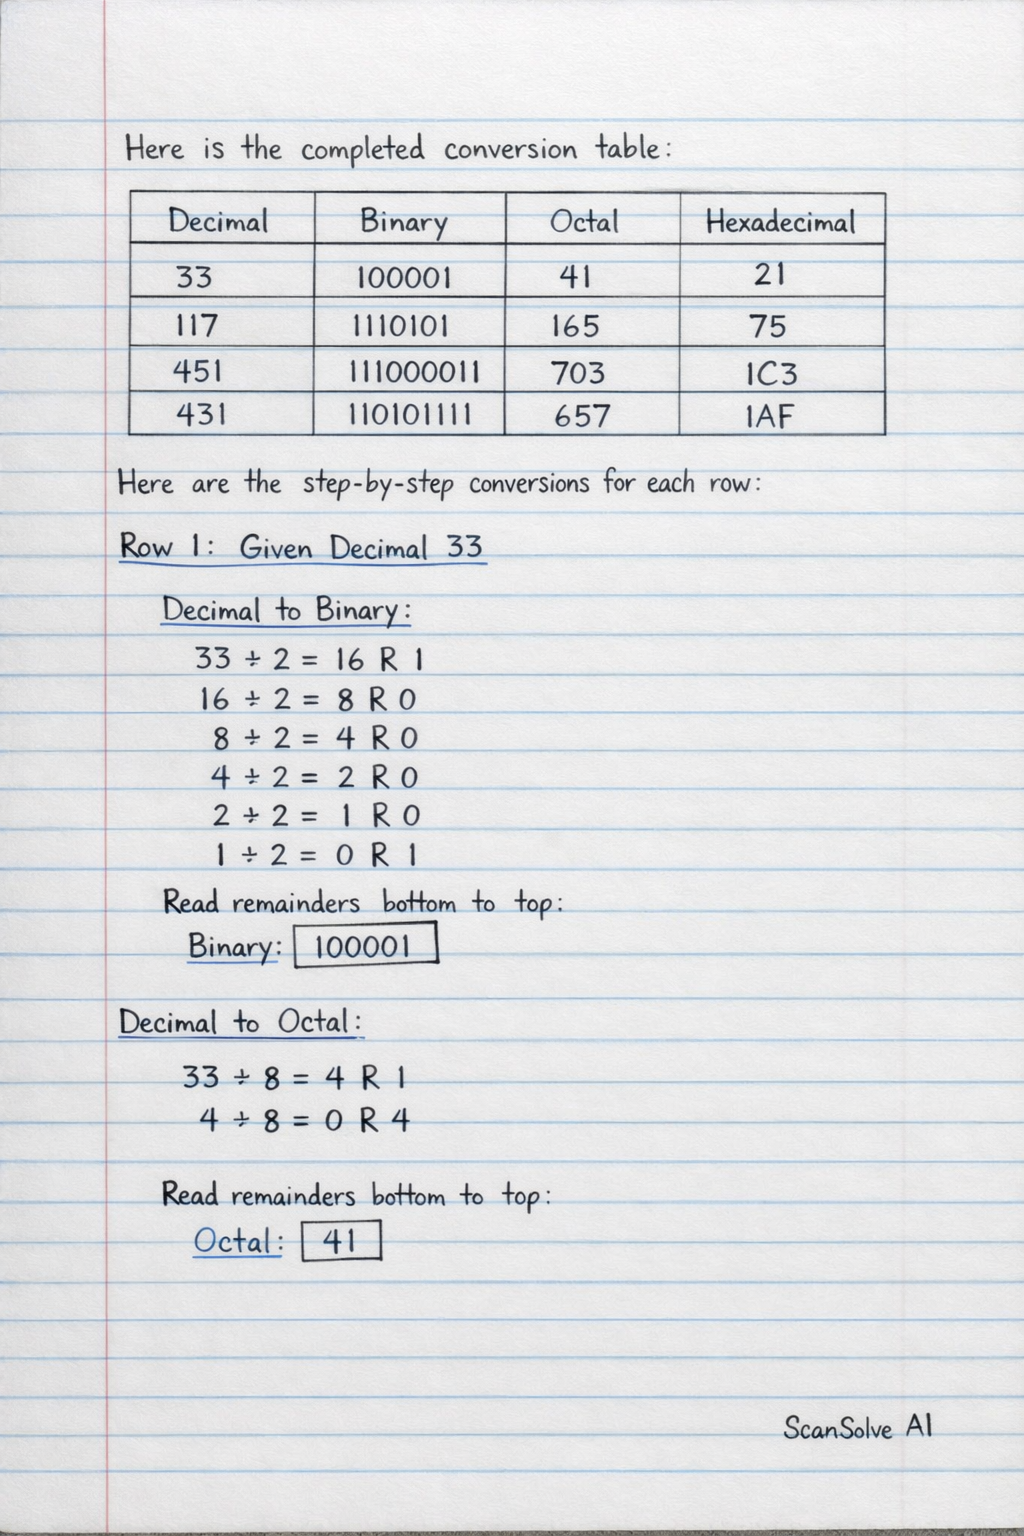 Here is the completed conversion table:
Decimal Binary Octal Hexadecimal
33 100001 41 21
117 1110101 165 75
451 111000011 703 1C3
431 110101111 657 1AF
Here are the step-by-step conversions for each row:
Row 1: Given Decimal 33
Decimal to Binary:
33 ÷ 2 = 16 R 1
16 ÷ 2 = 8 R 0
8 ÷ 2 = 4 R 0
4 ÷ 2 = 2 R 0
2 ÷ 2 = 1 R 0
1 ÷ 2 = 0 R 1
Read remainders bottom to top:
Binary: 100001
Decimal to Octal:
33 ÷ 8 = 4 R 1
4 ÷ 8 = 0 R 4
Read remainders bottom to top:
Octal: 41
ScanSolve AI